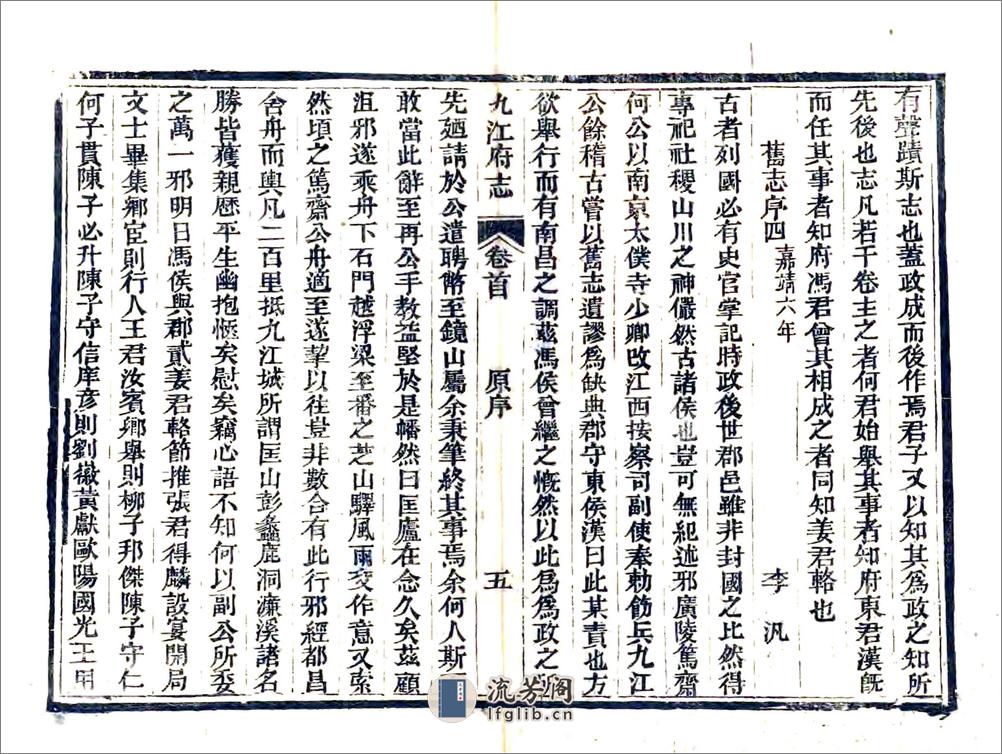 有聲蹟斯志也蓋政成而後作焉君子又以知其為政之知所
先後也志凡若干卷主之者何君始舉其事者知府東君漢旣
而任其事者知府馮君曾其相成之者同知姜君輅也
舊志序四 嘉靖六年 李汎
古者列國必有史官掌記時政後世郡邑雖非封國之比然得
專祀社稷山川之神儼然古諸侯也豈可無紀述邪廣陵篤齋
何公以南京太僕寺少卿改江西按察司副使奉勅飭兵九江
公餘稽古嘗以舊志遺謬為缺典郡守東侯漢曰此某責也方
欲舉行而有南昌之調茲馮侯曾繼之慨然以此為為政之
九江府志 卷首 原序 五
先廼請於公遣聘幣至鏡山屬余秉筆終其事焉余何人斯
敢當此辭至再公手教益堅於是幡然曰匡廬在念久矣茲顧
沮邪遂乘舟下石門越浮梁至番之芝山驛風雨交作意又索
然頃之篤齋公舟適至遂挈以往豈非數合有此行邪經都昌
舍舟而輿凡二百里抵九江城所謂匡山彭蠡鹿洞濂溪諸名
勝皆獲親歷平生幽抱愜矣慰矣竊心語不知何以副公所委
之萬一邪明日馮侯與郡貳姜君輅節推張君得麟設宴開局
文士畢集鄉宦則行人王君汝賓鄉舉則柳子邦傑陳子守仁
何子貫陳子必升陳子守信庠彥則劉徽黃獻歐陽國光王用
流芳閣
lfglib.cn